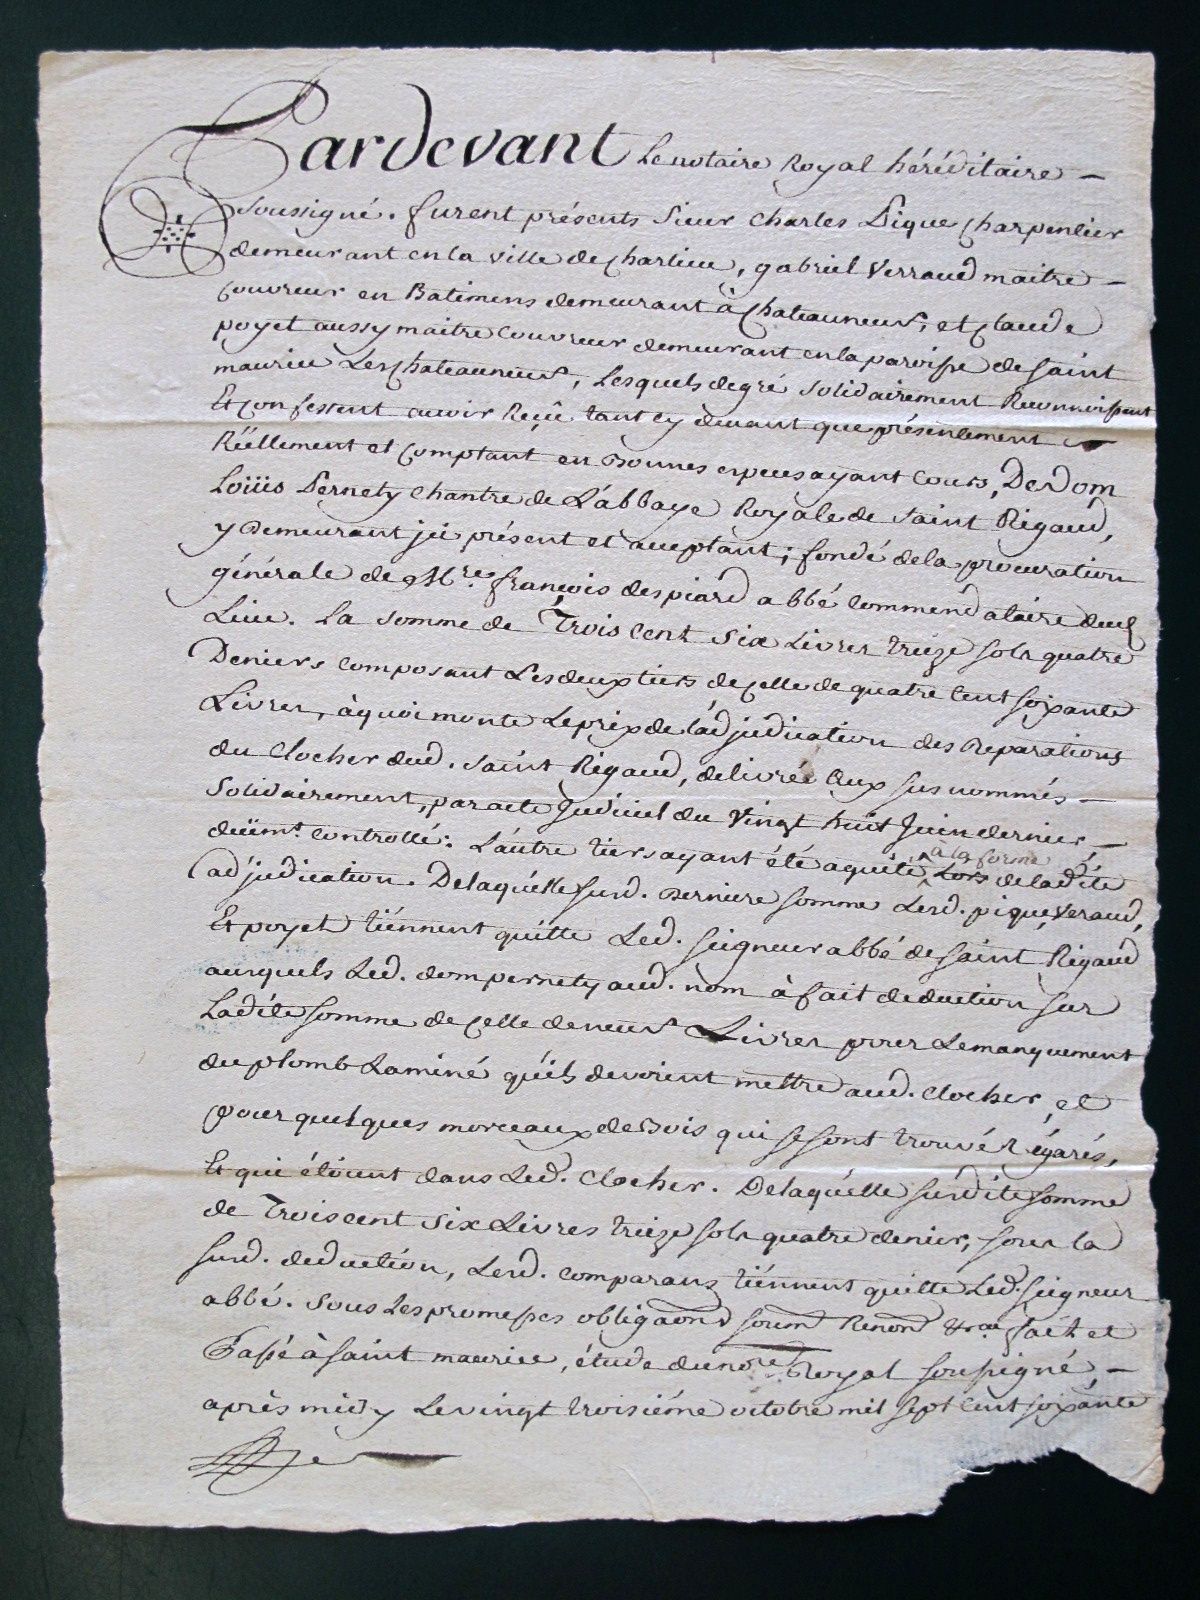 Pardevant Le notaire Royal héréditaire –
soussigné. furent présents Sieur Charles Pique Charpentier
demeurant en la ville de Charlieu, gabriel Verraud maitre –
Couvreur en Batimens demeurant à Chateauneuf, et Claude
poyet aussy maitre Couvreur demeurant en la paroisse de Saint
maurice Les Chateauneuf, Lesquels de gré solidairement Reconnoissent
Et Confessent avoir Reçû tant cy devant que présentement
Réëllement et Comptant en Bonnes especes ayant Cours, De Dom
Loüis Pernety Chantre de L'abbaye Royale de Saint Rigaud,
y Demeurant ici présent et acceptant; fondé de la procuration
générale de Mre françois despiard abbé Commendataire dud
Lieu. La somme de Trois Cent Six Livres treize sols quatre
Deniers composant Les deux tiers de Celle de quatre Cent soixante
Livres, à quoi monte Le prix de l'adjudication des Reparations
du Clocher dud. Saint Rigaud, delivrée aux susnommés –
Solidairement, par acte Judiciel du Vingt huit Juin dernier, –
düëmt. Controllé: L'autre tiers ayant été aquité à la forme Lors de ladite
adjudication. De laquélle susd. Derniere somme Lesd. pique, Veraud,
Et poyet tiénnent quitte Led. seigneur abbé de saint Rigaud
auxquels Led. dom pernety aud. nom à fait deduction sur
Ladite somme de Celle de neuf Livres pour Le manquement
du plomb Laminé qu'ils devoient mettre aud. Clocher, et
pour quelques morceaux de Bois qui se sont trouvés égarés,
Et qui étoient dans Led. Clocher. De laquélle susdite somme
de Trois cent Six Livres treize sols quatre denier, sous la
susd. deduction, Lesd. Comparans tiénnent quitte Led. seigneur
abbé. Sous Les promesses obligaons soumt Renont &ca fait et
Passé à saint maurice, étude du nore Royal soussigné, –
aprés midy Le vingt troisiéme octobre mil sept Cent soixante